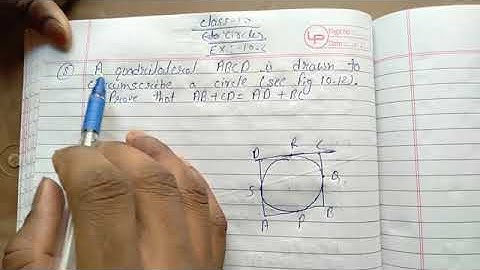 Class-10
Circles
Ex:-10.2
(8) A quadrilateral ABCD is drawn to
circumscribe a circle (see fig 10.12).
Prove that AB+CD=AD+BC
D R C
S Q
A P B